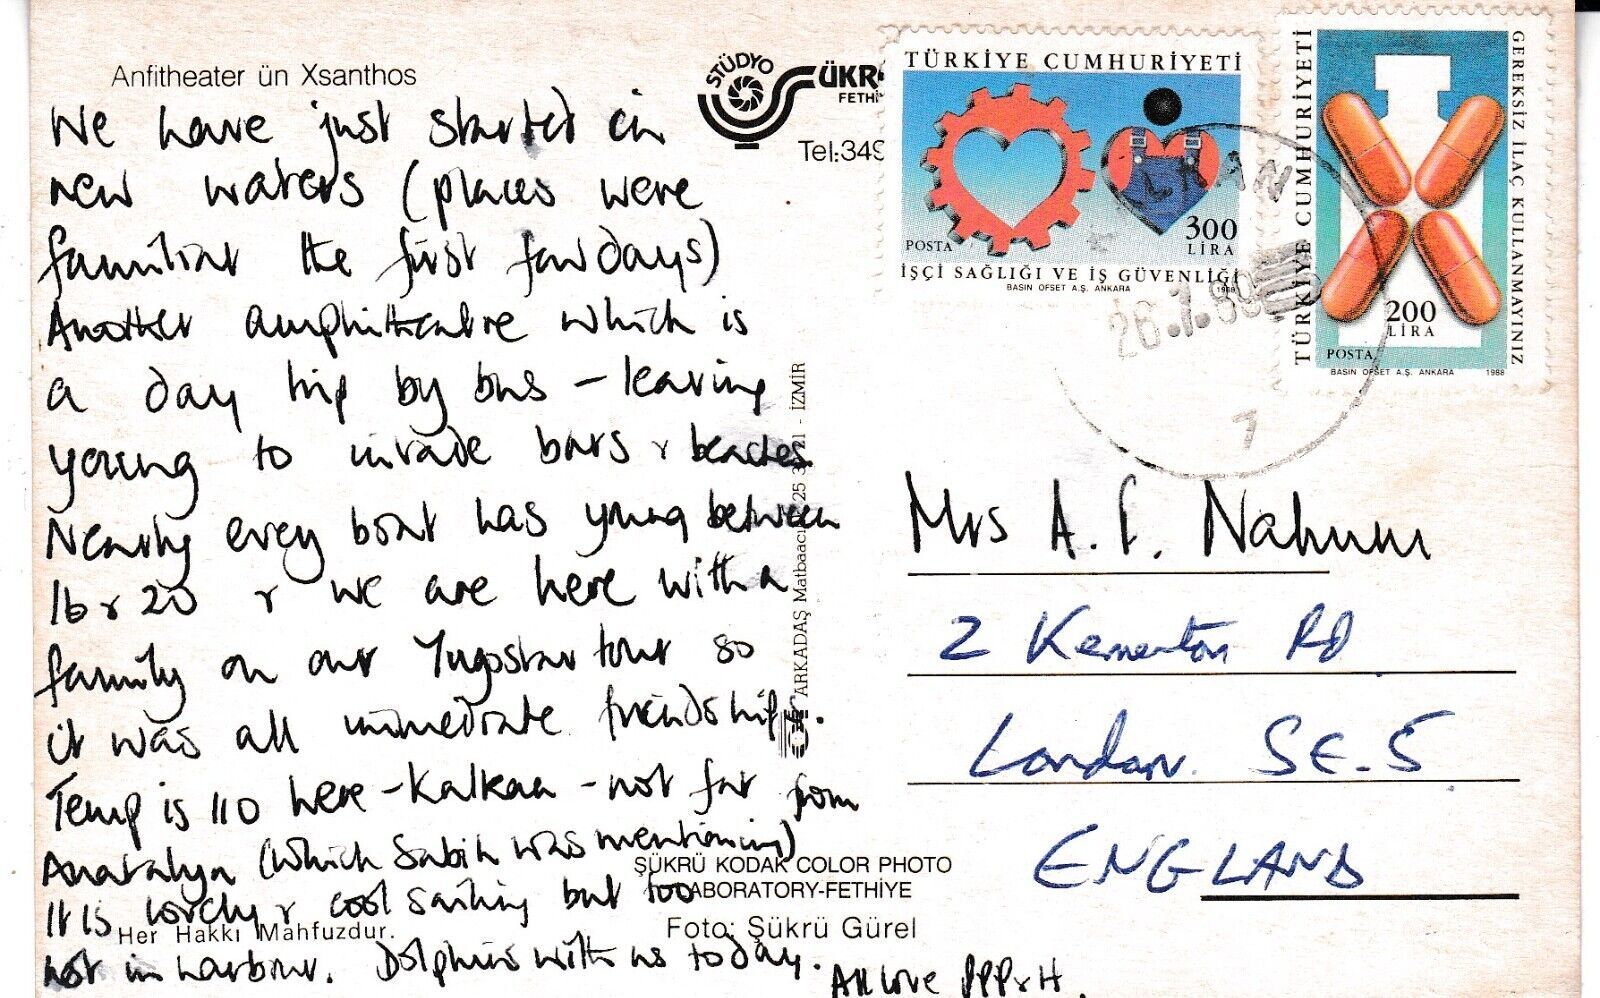 Anfitheater ün Xsanthos
STÜDYO
ÜKR
FETHİY
Tel:349
We have just started in
new waters (places were
familiar the first few days)
Another amphitheatre which is
a day trip by bus – leaving
young to invade bars & beaches.
Nearly every boat has young between
16 & 20 & we are here with a
family on our Yugoslav tour so
it was all immediate friendships.
Temp is 110 here – Kalkan – not far from
Anatalya (which Sabih was mentioning)
It is lovely & cool sailing but too
hot in harbour. Dolphins with us today.
All love PPP & H.
Her Hakkı Mahfuzdur.
ŞÜKRÜ KODAK COLOR PHOTO
LABORATORY-FETHİYE
Foto: Şükrü Gürel
ARKADAŞ Matbaacılık 25 3 21 - İZMİR
TÜRKİYE CUMHURİYETİ
POSTA
300
LİRA
İŞÇİ SAĞLIĞI VE İŞ GÜVENLİĞİ
BASIN OFSET A.Ş. ANKARA 1988
TÜRKİYE CUMHURİYETİ
GEREKSİZ İLAÇ KULLANMAYINIZ
200
LİRA
POSTA
BASIN OFSET A.Ş. ANKARA 1988
LKAN
26.7.89
7
Mrs A. P. Nahum
2 Kemerton RD
London. SE.5
ENGLAND